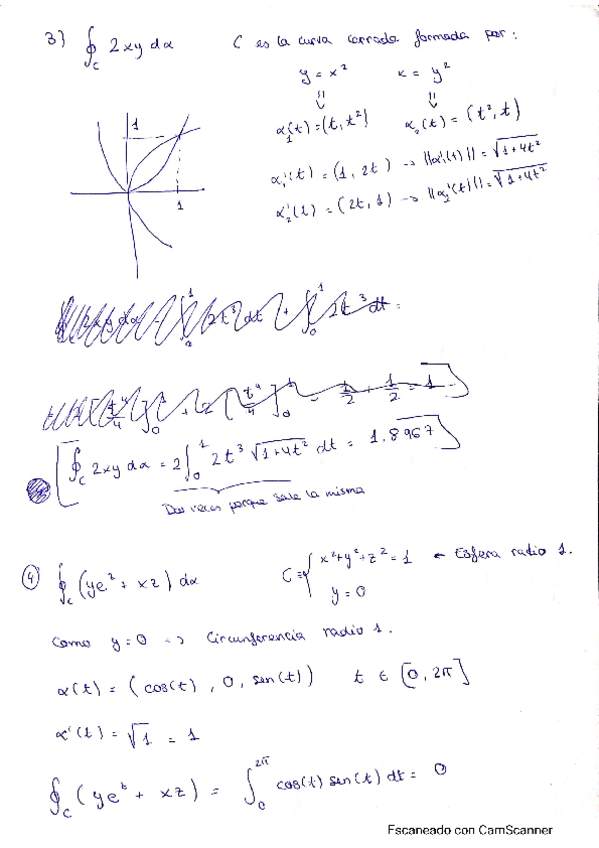 3) ∮_C 2xy dα C es la curva cerrada formada por:
y = x² x = y²
⇓ ⇓
α₁(t) = (t, t²) α₂(t) = (t², t)
α₁'(t) = (1, 2t) → ||α₁'(t)|| = √1+4t²
α₂'(t) = (2t, 1) → ||α₂'(t)|| = √1+4t²
1
1
∮_C 2xy dα = 2∫₀¹ 2t³ √1+4t² dt = 1.8967
Dos veces porque sale la misma
④ ∮_C (ye² + xz) dα C = { x²+y²+z² = 1 ← Esfera radio 1.
y = 0
Como y = 0 => Circunferencia radio 1.
α(t) = (cos(t), 0, sen(t)) t ∈ [0, 2π]
α'(t) = √1 = 1
∮_C (ye + xz) = ∫₀^2π cos(t) sen(t) dt = 0
Escaneado con CamScanner